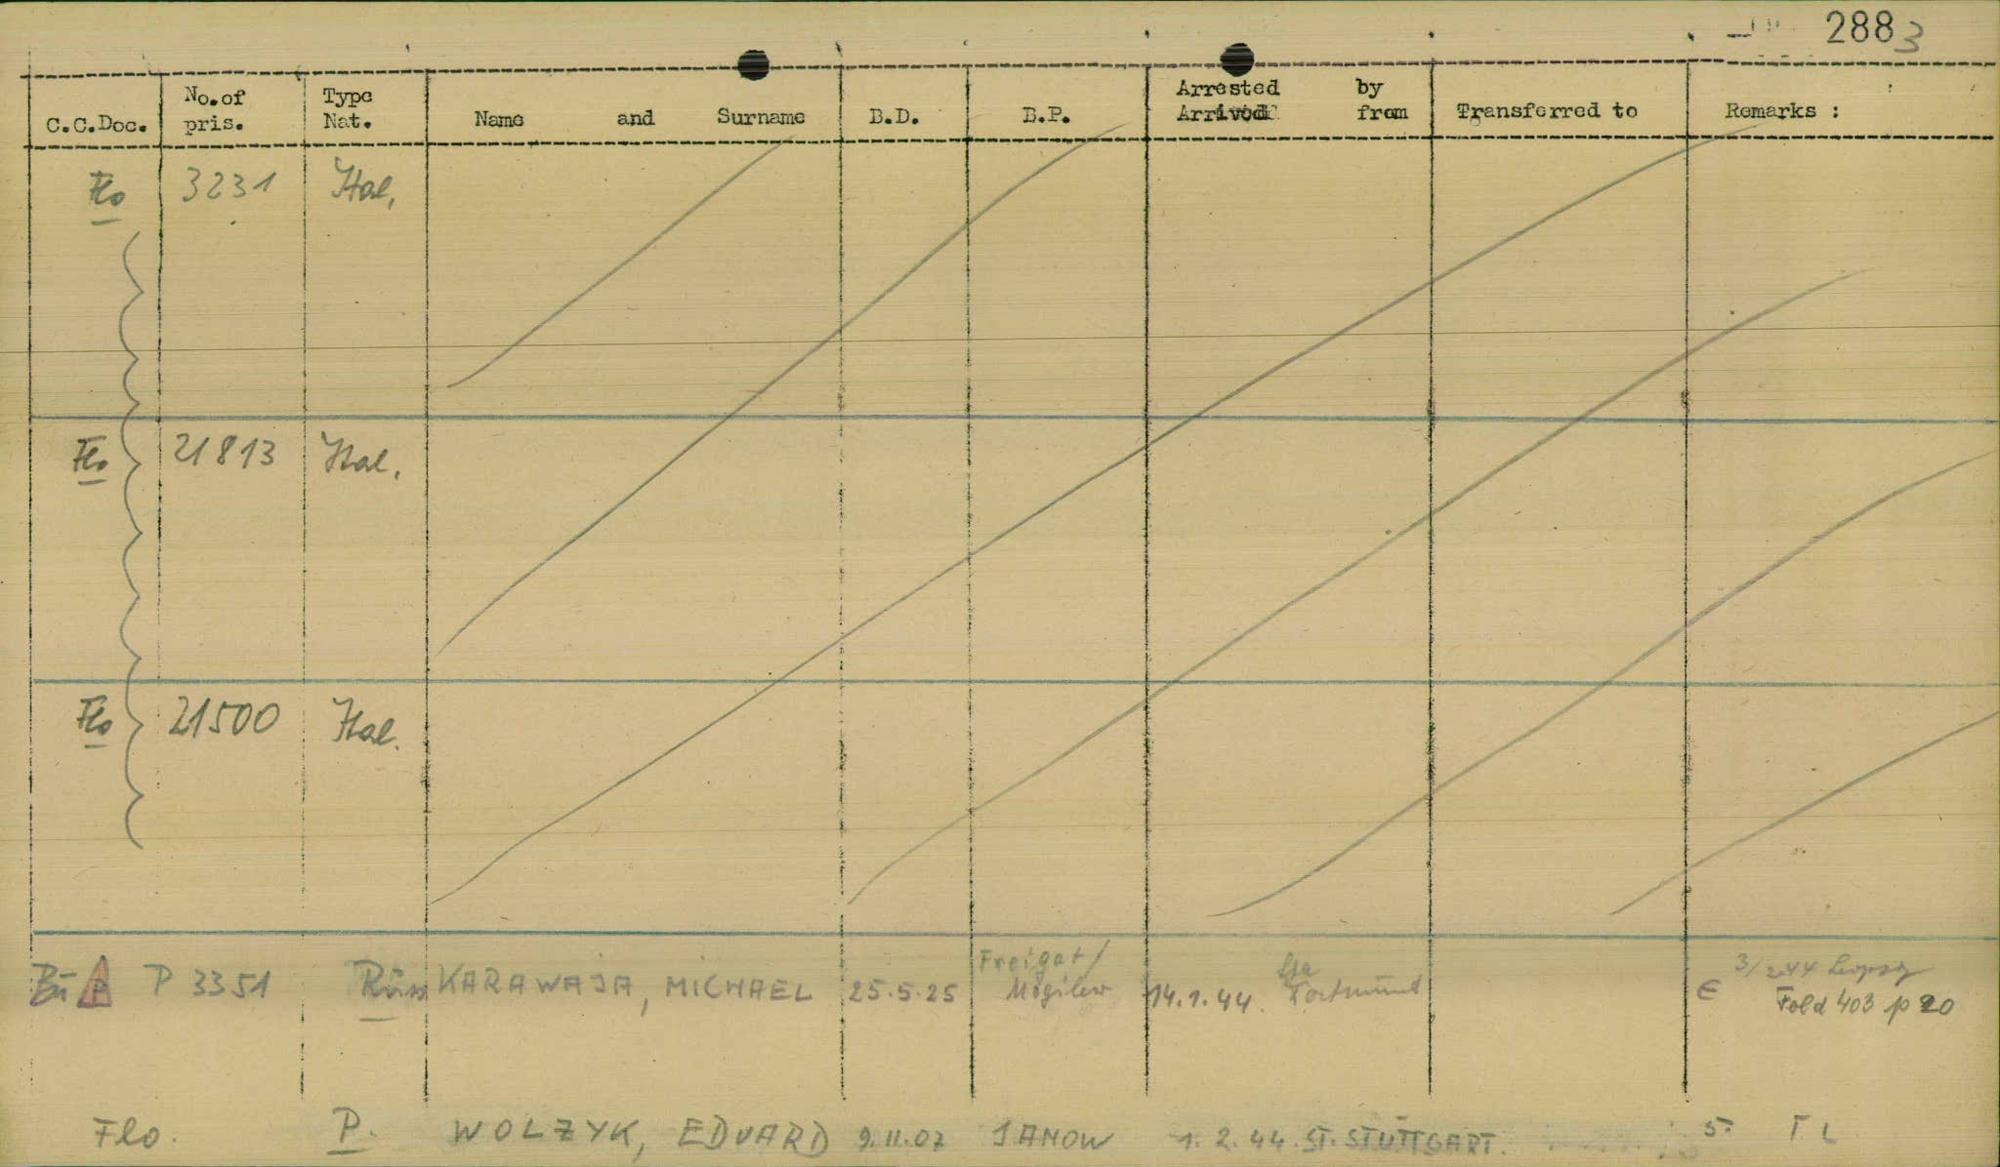 2883
C.C.Doc. No.of pris. Type Nat. Name and Surname B.D. B.P. Arrested by Arrived from Transferred to Remarks :
Flo 3231 Ital.
Flo 21813 Ital.
Flo 21500 Ital.
Bü P P 3351 Russ KARAWAJA, MICHAEL 25.5.25 Freigat/ Mogilew 14.1.44. Sta Dortmund E 3/2.44 Leipzig Fold 403 p 20
Flo. P. WOLZYK, EDUARD 9.11.07 JANOW 1.2.44. ST. STUTTGART. 5. T L